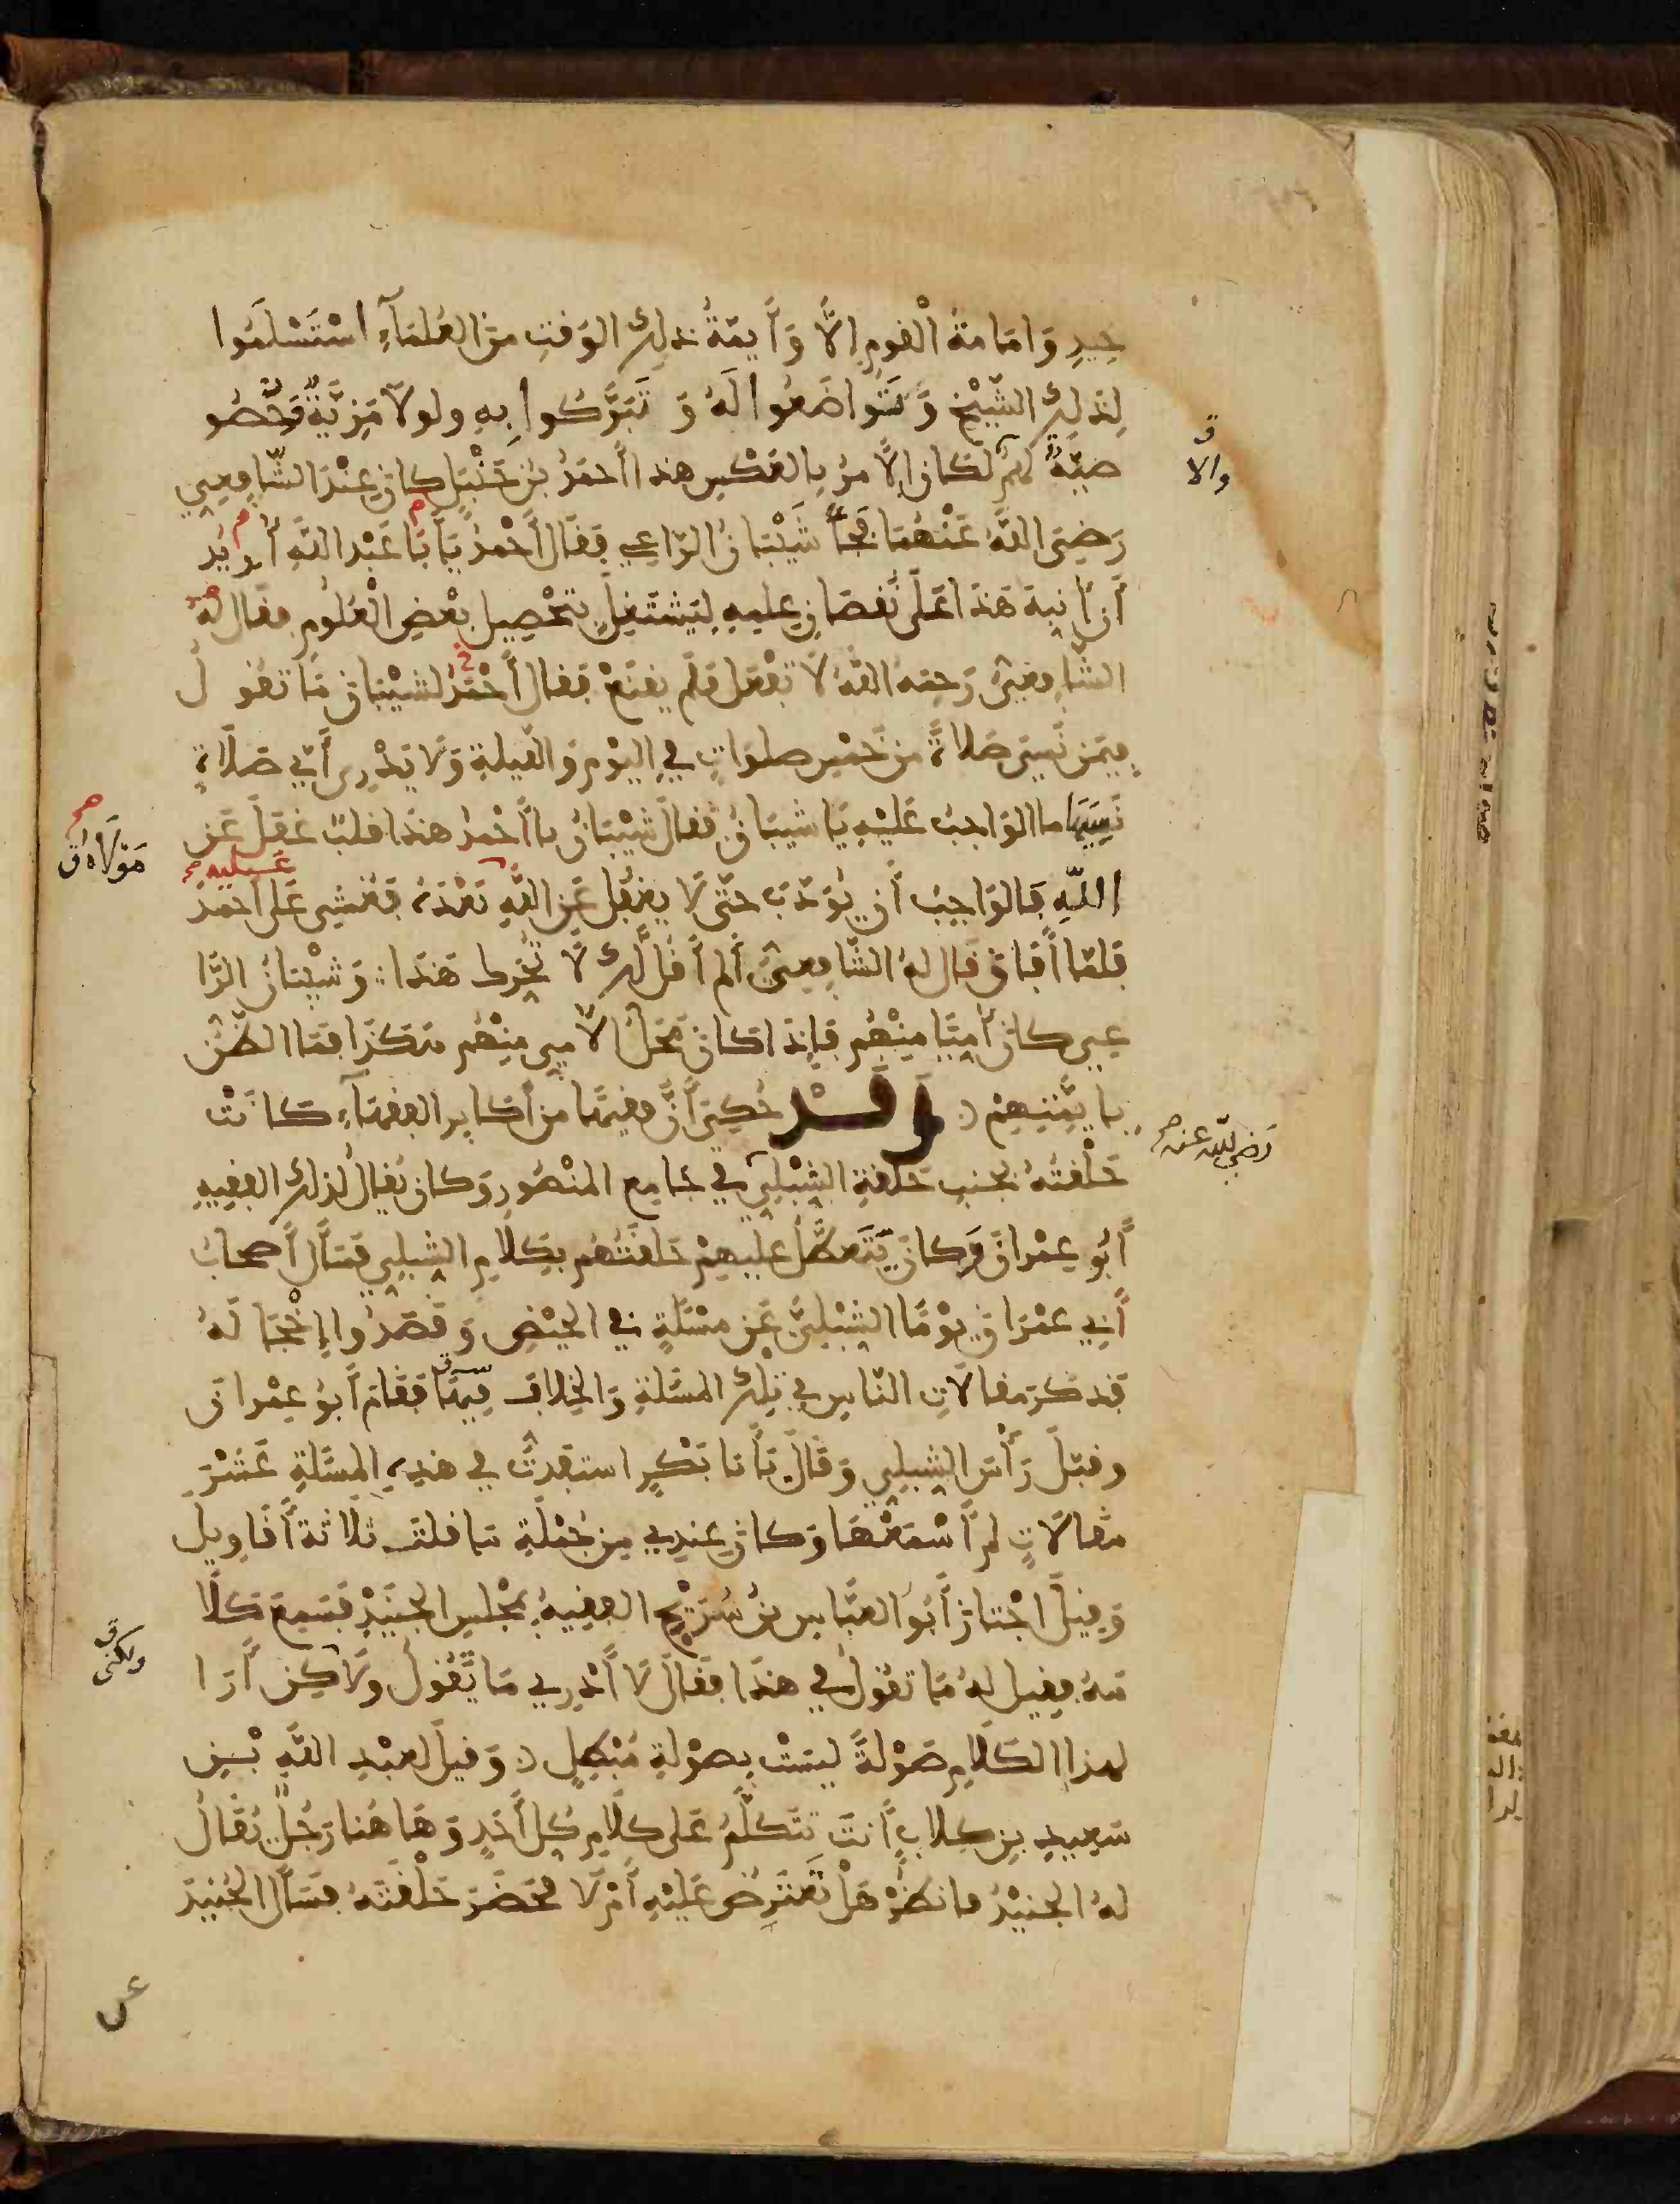 حِيدِ وَامَامَةُ الْقومِ اِلَّا وَأَيمّةُ ذلِكَ الوَقتِ مِنَ العُلمَآءِ اسْتَسْلَمُوا
لِذَلِكَ الشَّيْخِ وَتَوَاضَعُوا لَهُ وَ تَبَرَّكُوا بِهِ ولولَا مَزِيَّةٌ وَخُصُو
صِيَّةٌ لهُمْ لكَانَ الَامرُ بِالعَكْسِ هذا أحمَدُ بنُ حَنْبَلٍ كانَ عِنْدَ الشَّافِعِي
رَضِيَ اللَّهُ عَنْهُمَا فجَآءَ شَيْبَانُ الرّاعِي فقَالَ أحْمدُ يَأبَا عَبْدِ اللَّهِ أُرِيدُ
أَن أُنَبِّهَ هَذَا عَلَى نُقصَانِ عِلمِهِ لِيَشتَغِلَ بتَحْصِيلِ بعْضِ الْعُلُومِ فقال لهُ
الشَّافِعِيُّ رَحِمَهُ اللَّهُ لَا تَفْعَل فلَم يقنَعْ فقال أَحْمَدُ لشَيْبَانَ مَا تقُو لُ
فِيمَن نَسِيَ صَلاةً مِن خَمْسِ صلوَاتٍ فِي اليَوْمِ وَالَّيلةِ وَلَا يَدْرِى أَيَّ صَلَاةٍ
نَسِيَهَا ما الوَاجبُ عَلَيْهِ يَا شيبَانُ فقالَ شَيْبَانُ يا أَحْمدُ هذَا قلبٌ غَفلَ عَنِ
مَوْلَاهُ ق
اللّهِ فَالوَاجِبُ أَن يُؤَدَّبَ حَتَّى لَا يغفُلَ عَنِ اللَّهِ بَعْدَهُ فغُشِي عَلى أحمدَ
عَليهِ
فلمّا أَفاقَ قال لهُ الشَّافِعيُّ أَلم أقُل لكَ لَا تُحَرِّك هَذَا وَشيْبَانُ الرَّا
عِي كانَ أُمِّيًّا مِنْهُم فإِذا كانَ مَحَلُّ الأُمِّي مِنْهُم هَكَذَا فمَا الظَّنُّ
بِأيِمَّتِهِمْ وَقَدْ حُكِيَ أَنَّ فقيهًا مِن أكَابِرِ الفقهَآءِ كَانَتْ
رَضِي اللّه عنهم
حَلْقتُهُ بجَنبِ حَلقةِ الشِّبْلِي فِي جَامِعِ المنْصُورِ وَكانَ يُقالُ لذلكَ الفقِيهِ
أَبُو عِمْرَانَ وَكانَ يَتَعَطَّلُ عَليهِمْ حَلقَتُهُم بِكلَامِ الشِّبلِي فسَأَلَ أَصحابُ
أَبِي عمْرَانَ يوْمًا الشِّبْلِيَّ عَن مسْئَلَةٍ فِي الحَيْضِ وَقَصَدُوا إِخْجَالَهُ
فذكَرَ مقالَاتِ النّاسِ فِي تِلكَ المسْئَلةِ وَالخِلافَ فِيهَا فقَامَ أَبُو عِمْرَانَ
وقبّلَ رَأْسَ الشِّبلِي وَقَالَ يَأَبَا بَكْرٍ استَفدتُّ فِي هذِهِ المسْئَلةِ عَشْرَ
مقالَاتٍ لمْ أَسْمَعْهَا وَكانَ عِندِي مِن جُمْلَةِ مَا قلتَ ثَلَاثةُ أَقَاوِيلَ
وَقِيلَ اجْتازَ أَبُو العَبّاسِ بنُ سُرَيْجٍ الفقِيهُ بمَجْلِسِ الجُنَيْدِ فَسَمِعَ كَلَا
ولكنى ق
مَهُ فقِيل لهُ مَا تقُولُ فِي هذَا فقَالَ لَا أَدْرِي مَا يَقُولُ ولَاكِن أَرَا
لهذا الكَلَامِ صَوْلَةً ليسَتْ بِصَوْلةِ مُبْطِلٍ وَقيلَ لعبْدِ اللَّهِ بْنِ
سَعِيدِ بنِ كِلابٍ أَنتَ تَتَكَلَّمُ عَلى كلَامِ كلِّ أَحَدٍ وَهَا هُنا رَجُلٌ يُقالُ
لهُ الجنيْدُ فانظُرْ هَلْ تَعْتَرِضُ عَلَيْهِ أَمْ لَا فحَضَرَ حَلْقتَهُ فسَأَلَ الجُنيدَ
عن